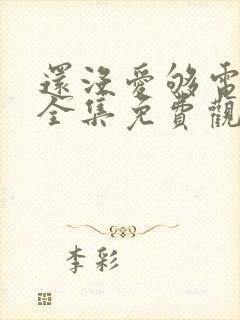 還沒愛够電
全集免費觀
李彩